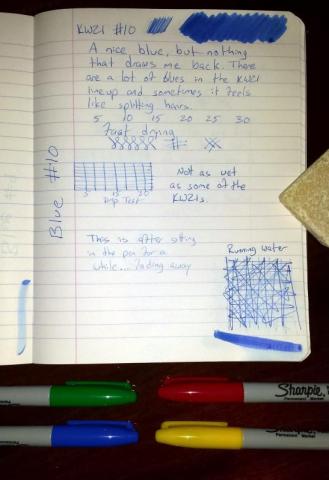 KWZI #10
A nice, blue, but nothing
that draws me back. There
are a lot of blues in the KWZI
lineup and sometimes it feels
like splitting hairs.
5 10 15 20 25 30
Fast drying
5 10 15 20
Drip Test
Not as wet
as some of the
KWZIs.
Blue #10
This is after sitting
in the pen for a
while... fading away
Running Water
Sharpie
Permanent Marker
Sharpie
Permanent Marker